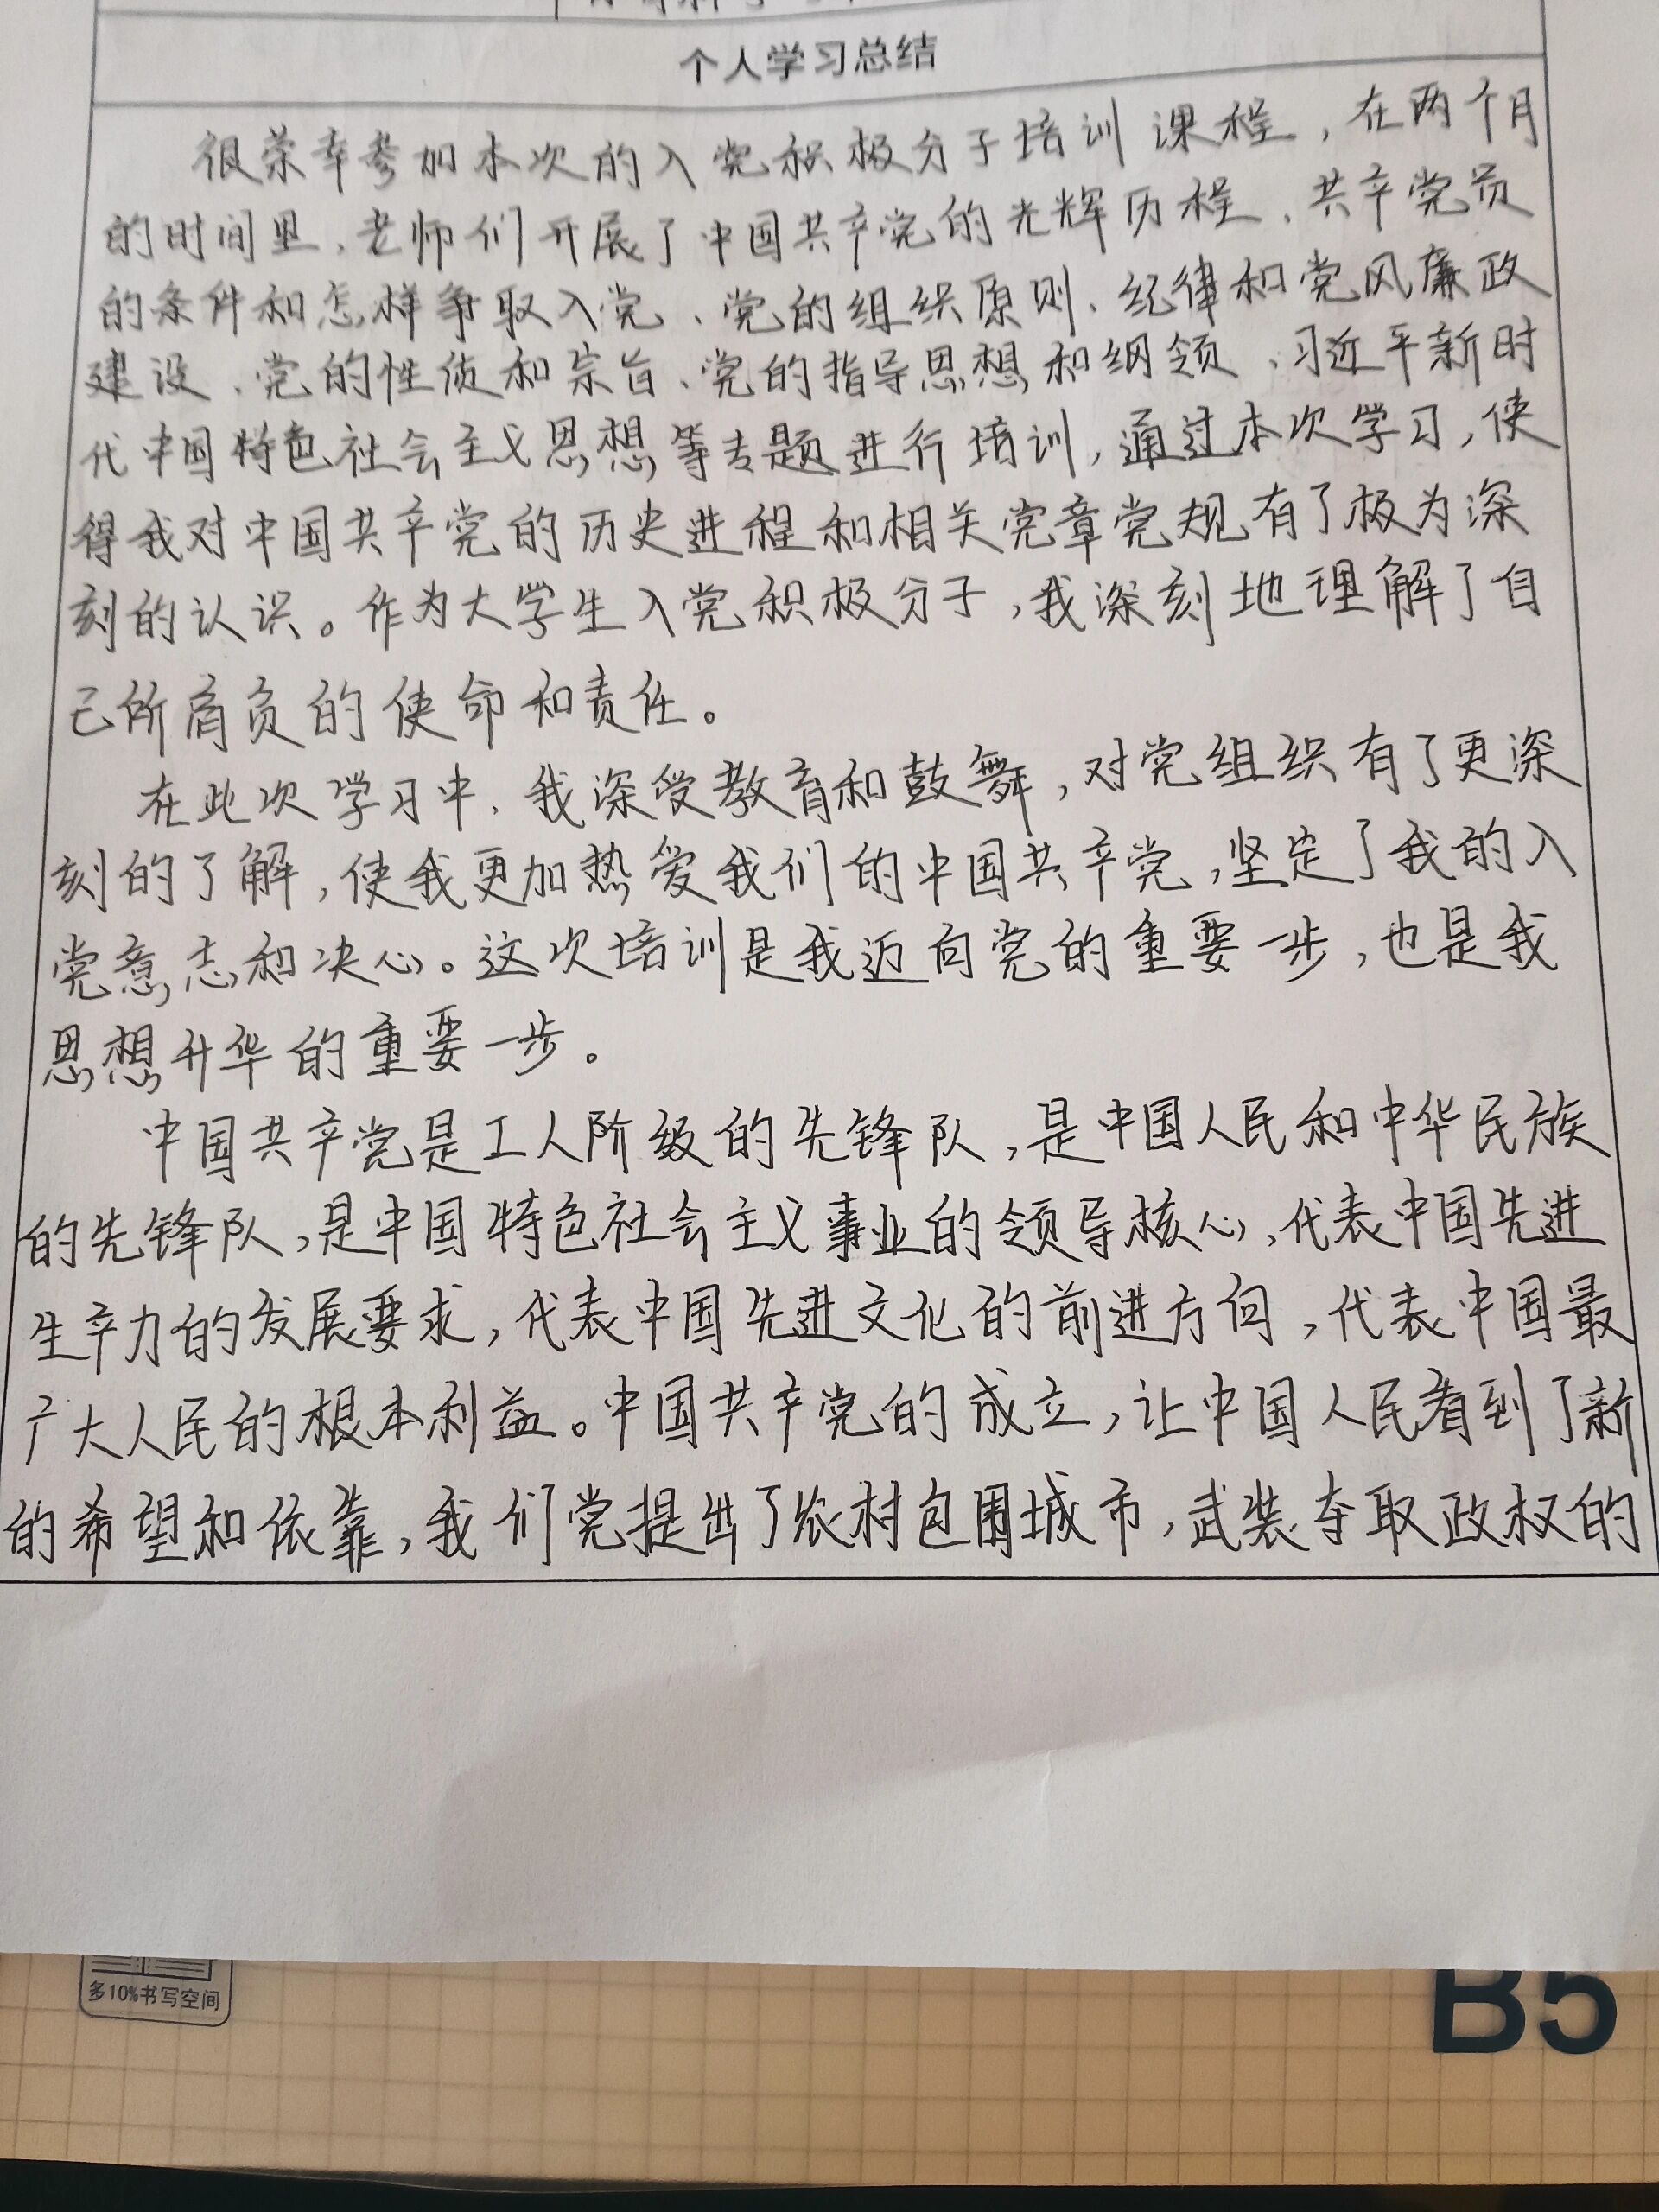 个人学习总结
很荣幸参加本次的入党积极分子培训课程，在两个月
的时间里，老师们开展了中国共产党的光辉历程、共产党员
的条件和怎样争取入党、党的组织原则、纪律和党风廉政
建设、党的性质和宗旨、党的指导思想和纲领、习近平新时
代中国特色社会主义思想等专题进行培训，通过本次学习，使
得我对中国共产党的历史进程和相关党章党规有了极为深
刻的认识。作为大学生入党积极分子，我深刻地理解了自
己所肩负的使命和责任。
在此次学习中，我深受教育和鼓舞，对党组织有了更深
刻的了解，使我更加热爱我们的中国共产党，坚定了我的入
党意志和决心。这次培训是我迈向党的重要一步，也是我
思想升华的重要一步。
中国共产党是工人阶级的先锋队，是中国人民和中华民族
的先锋队，是中国特色社会主义事业的领导核心，代表中国先进
生产力的发展要求，代表中国先进文化的前进方向，代表中国最
广大人民的根本利益。中国共产党的成立，让中国人民看到了新
的希望和依靠，我们党提出了农村包围城市，武装夺取政权的
多10%书写空间
B5